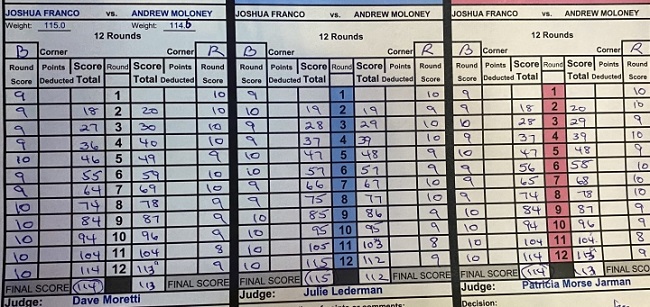 JOSHUA FRANCO vs. ANDREW MOLONEY
Weight: 115.0 Weight: 114.6
12 Rounds
B Corner Corner R
Round Points Score Round Score Points Round
Score Deducted Total Total Deducted Score
9 1 10
9 18 2 20 10
9 27 3 30 10
9 36 4 40 10
10 46 5 49 9
9 55 6 59 10
9 64 7 69 10
10 74 8 78 9
10 84 9 87 9
10 94 10 96 9
10 104 11 104 8
10 114 12 113 9
FINAL SCORE 114 113 FINAL SCORE
Judge: Dave Moretti
JOSHUA FRANCO vs. ANDREW MOLONEY
12 Rounds
B Corner Corner R
Round Points Score Round Score Points Round
Score Deducted Total Total Deducted Score
9 1 10
10 19 2 19 9
9 28 3 29 10
9 37 4 39 10
10 47 5 48 9
10 57 6 57 9
9 66 7 67 10
9 75 8 77 10
10 85 9 86 9
10 95 10 95 9
10 105 11 103 8
10 115 12 112 9
FINAL SCORE 115 112 FINAL SCORE
Judge: Julie Lederman
JOSHUA FRANCO vs. ANDREW MOLONEY
12 Rounds
B Corner Corner R
Round Points Score Round Score Points Round
Score Deducted Total Total Deducted Score
9 1 10
9 18 2 20 10
10 28 3 29 9
9 37 4 39 10
10 47 5 48 9
9 56 6 58 10
9 65 7 68 10
9 74 8 78 10
10 84 9 87 9
10 94 10 96 9
10 104 11 104 8
10 114 12 113 9
FINAL SCORE 114 113 FINAL SCO
Judge: Patricia Morse Jarman
Decision: